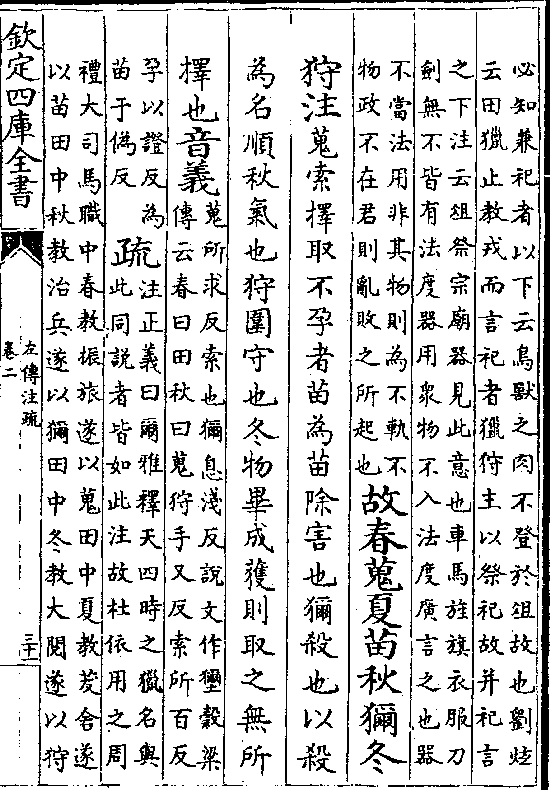 必知兼祀者以下云鳥獸之肉不登於俎故也劉炫
云田獵止教戎而言祀者獵狩主以祭祀故并祀言
之下注云俎祭宗廟器見此意也車馬旌旗衣服刀
劍無不皆有法度器用衆物不入法度廣言之也器
不當法用非其物則為不軌不
物政不在君則亂敗之所起也
故春蒐夏苗秋獮冬
狩注蒐索擇取不孕者苗為苗除害也獮殺也以殺
為名順秋氣也狩圍守也冬物畢成獲則取之無所
擇也音義
蒐所求反索也獮息淺反說文作𤣔穀梁
傳云春曰田秋曰蒐狩手又反索所百反
孕以證反為
苗于偽反
疏
注正義曰爾雅釋天四時之獵名與
此同說者皆如此注故杜依用之周
禮大司馬職中春教振旅遂以蒐田中夏教茇舍遂
以苗田中秋教治兵遂以獮田中冬教大閱遂以狩
欽定四庫全書
左傳注疏
卷二
三十一